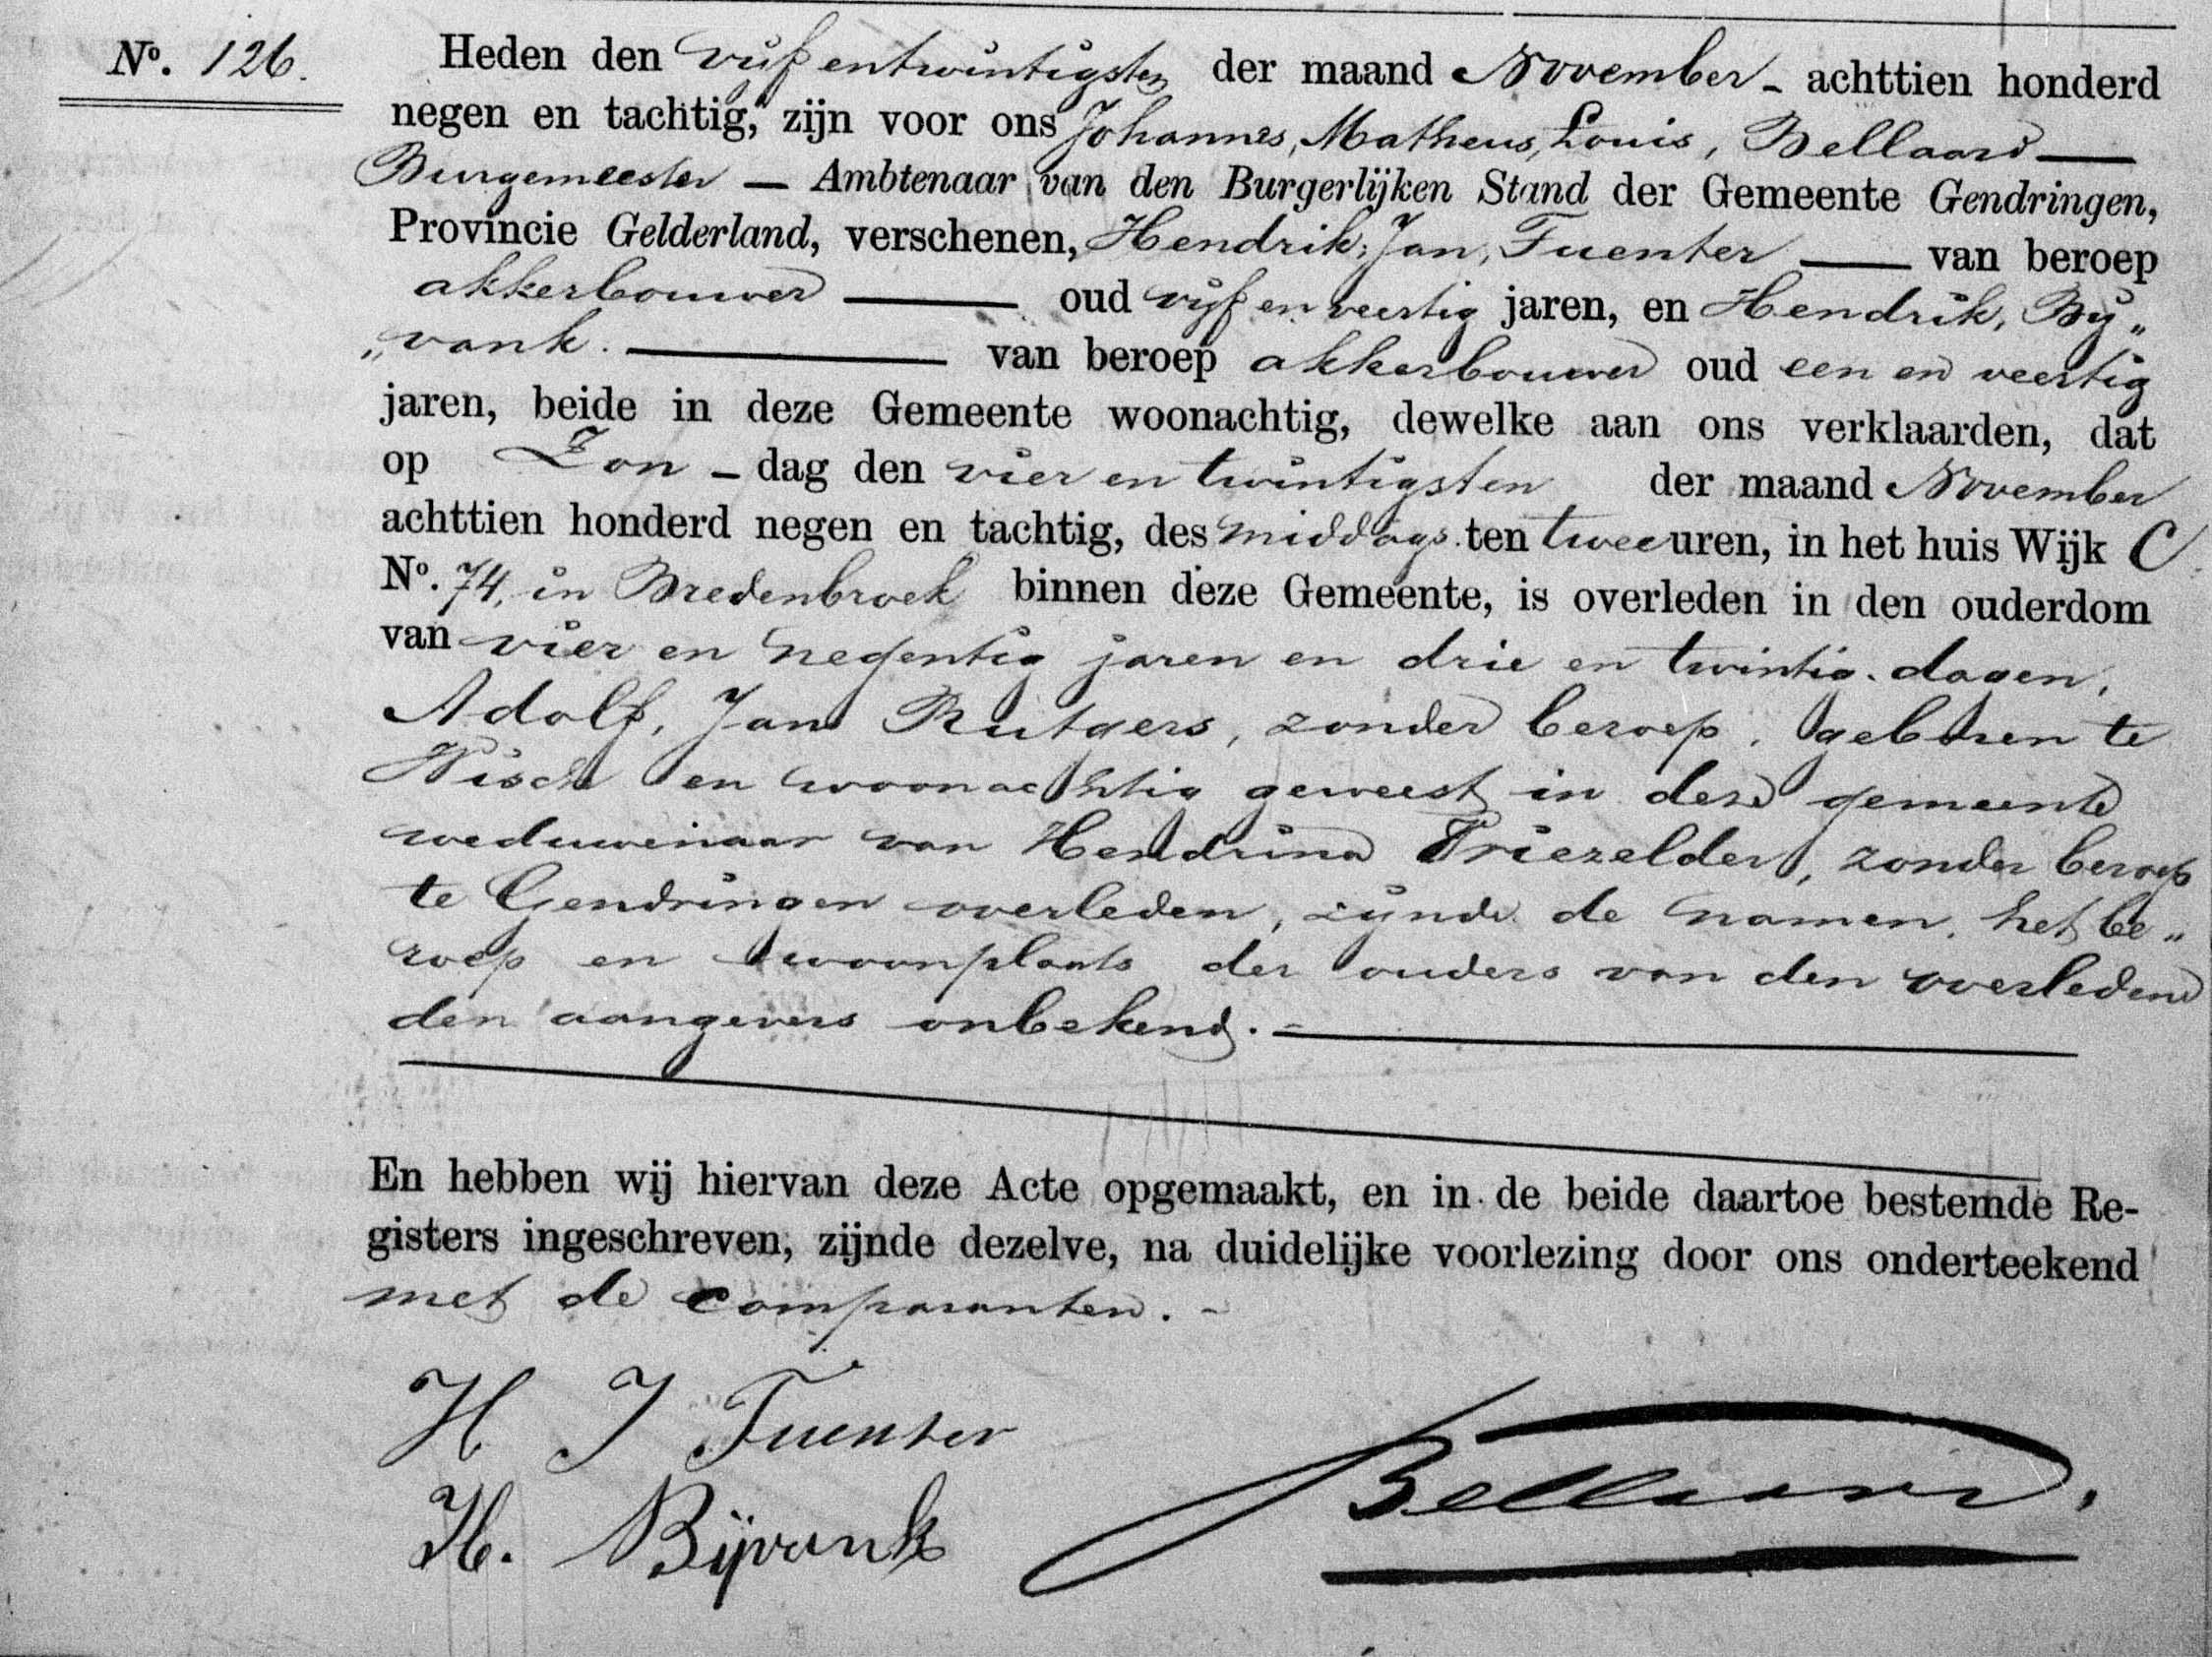 Nº. 126.
Heden den vijf entwintigsten der maand November - achttien honderd
negen en tachtig, zijn voor ons Johannes, Matheus, Louis, Bellaard
Burgemeester — Ambtenaar van den Burgerlijken Stand der Gemeente Gendringen,
Provincie Gelderland, verschenen, Hendrik, Jan, Tuenter — van beroep
akkerbouwer — oud vijf en veertig jaren, en Hendrik, By„
„vank. — van beroep akkerbouwer oud een en veertig
jaren, beide in deze Gemeente woonachtig, dewelke aan ons verklaarden, dat
op Zon - dag den vier en twintigsten der maand November
achttien honderd negen en tachtig, des middags ten twee uren, in het huis Wijk C
Nº. 74, in Bredenbroek binnen deze Gemeente, is overleden in den ouderdom
van vier en negentig jaren en drie en twintig dagen,
Adolf, Jan Rutgers, zonder beroep, geboren te
Wisch en woonachtig geweest in deze gemeente
weduwenaar van Hendrina Friezelder, zonder beroep
te Gendringen overleden, zijnde de namen, het be„
roep en woonplaats der ouders van den overledene
den aangevers onbekend. -
En hebben wij hiervan deze Acte opgemaakt, en in de beide daartoe bestemde Re-
gisters ingeschreven, zijnde dezelve, na duidelijke voorlezing door ons onderteekend
met de comparanten. -
H J Tuenter
H. Bijvank
Bellaard.